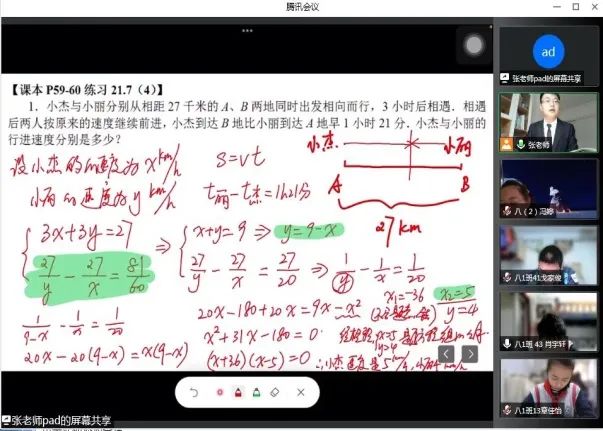 腾讯会议
【课本 P59-60 练习 21.7（4）】
1．小杰与小丽分别从相距 27 千米的 A、B 两地同时出发相向而行，3 小时后相遇．相遇
后两人按原来的速度继续前进，小杰到达 B 地比小丽到达 A 地早 1 小时 21 分．小杰与小丽的
行进速度分别是多少？
设小杰的速度为 x km/h
小丽的速度为 y km/h
s=vt
t丽-t杰=1h21分
小杰 小丽
A B
27km
3x+3y=27
27/y - 27/x = 81/60
⇒ x+y=9 ⇒ y=9-x
27/y - 27/x = 27/20 ⇒ 1/y - 1/x = 1/20
1/(9-x) - 1/x = 1/20
20x-20(9-x)=x(9-x)
20x-180+20x=9x-x²
x²+31x-180=0
(x+36)(x-5)=0
x₁=-36
x₂=5
y=4
∴小杰速度是5km/h
张老师pad的屏幕共享
ad
张老师pad的屏幕共享
张老师
八（2）冯婷
八1班41戈家俊
八1班 43 肖宇轩
八1班13章佳怡